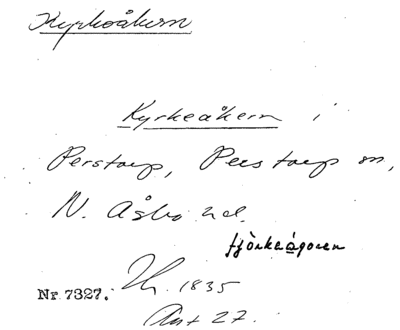 Kyrkoåkern
Kyrkeåkern i
Perstorp, Perstorp sn,
N. Åsbo hd.
Nr 7327. 1835
Akt 27.